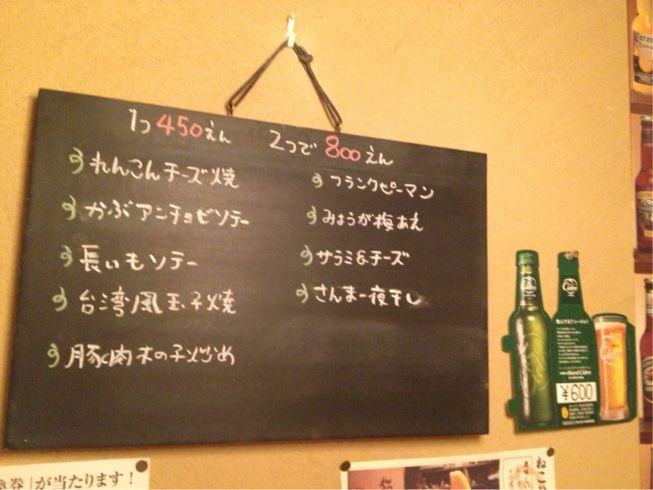 1つ450えん 2つで800えん
れんこんチーズ焼
かぶアンチョビソテー
長いもソテー
台湾風玉子焼
豚肉木の子炒め
フランクピーマン
みょうが梅あえ
サラミ&チーズ
さんま一夜干し
Hard Cidre
¥600
き券」が当たります！
ねこ